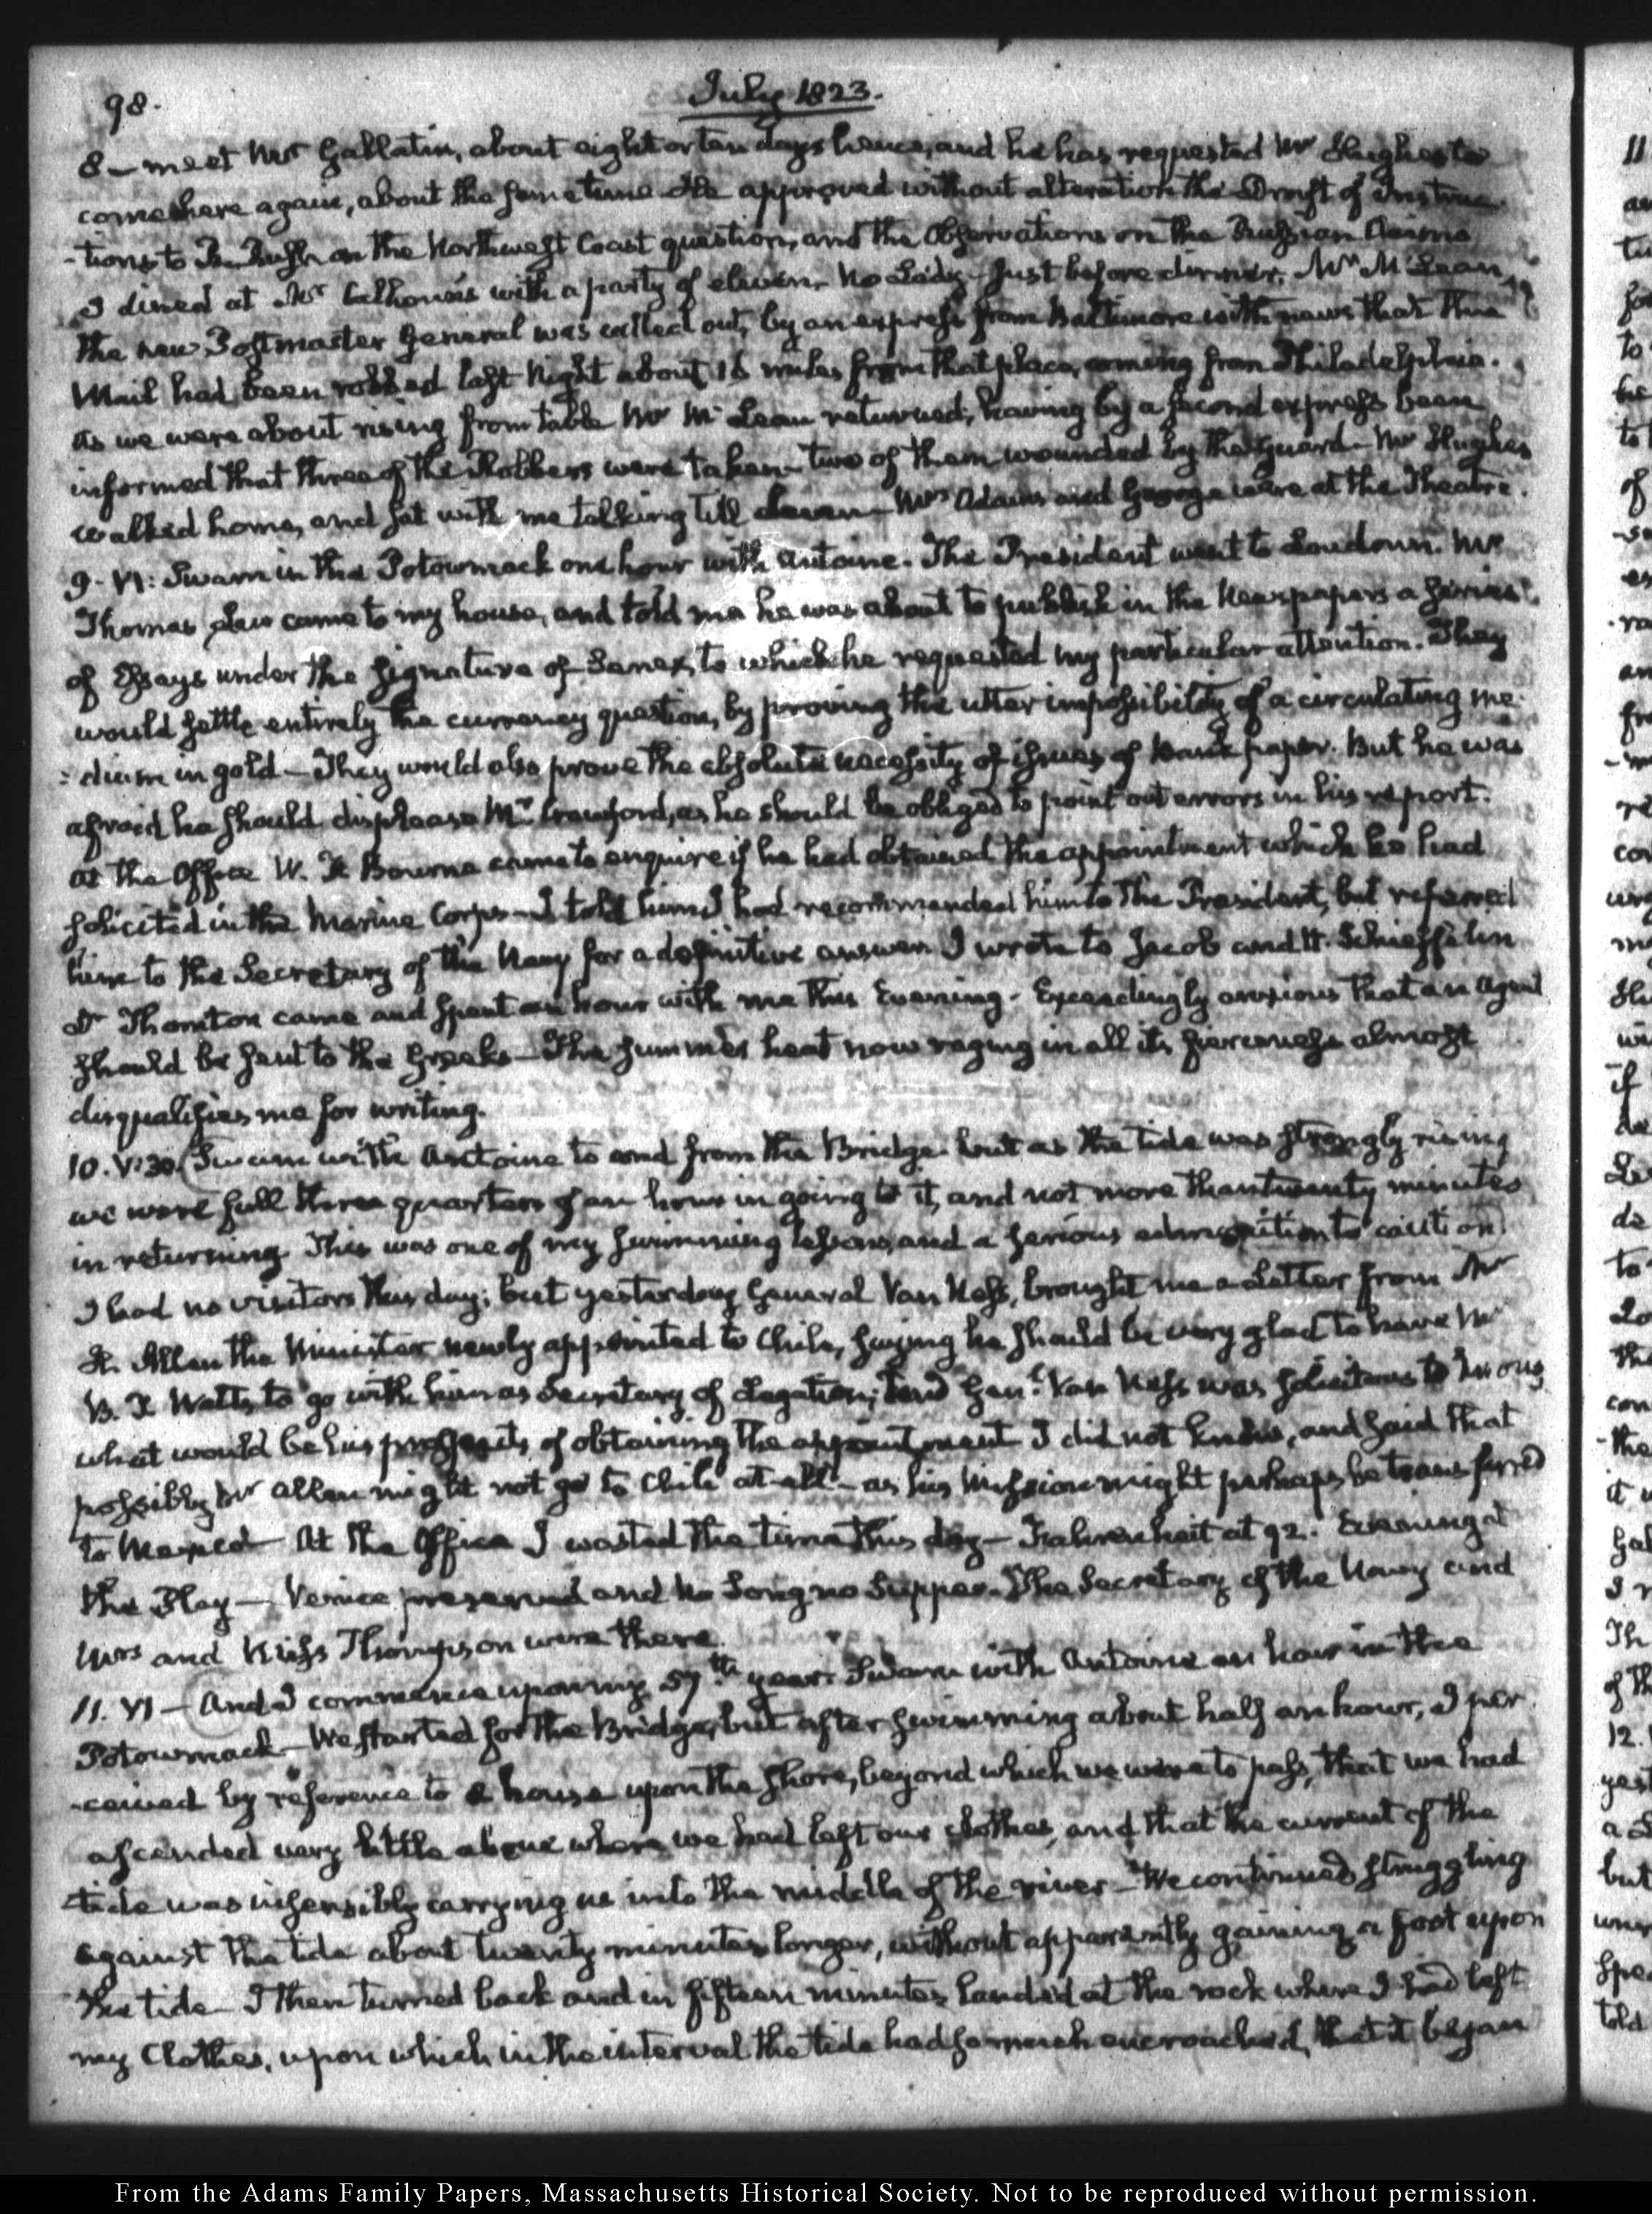 98.
July 1823.
8 — meet Mr Gallatin, about eight or ten days hence, and he has requested Mr Hughes to
come here again, about the same time. He approved without alteration the Draft of Instruc-
-tions to R. Rush on the Northwest Coast question, and the Observations on the Russian Claims
I dined at Mr Calhoun's with a party of eleven. No Lady — Just before dinner, Mr McLean,
the new Postmaster General was called out, by an express from Baltimore with news that the
Mail had been robbed last Night about 18 miles from that place, coming from Philadelphia.
As we were about rising from table Mr McLean returned; having by a second express been
informed that three of the Robbers were taken — two of them wounded by the guard — Mr Hughes
walked home, and sat with me talking till eleven — Mrs Adams and George were at the Theatre.
9. VI: Swam in the Potowmack one hour with Antoine. The President went to Loudoun. Mr
Thomas Law came to my house, and told me he was about to publish in the Newspapers a series
of Essays under the signature of Senex, to which he requested my particular attention. They
would settle entirely the currency question, by proving the utter impossibility of a circulating me-
-dium in gold — They would also prove the absolute necessity of issues of Bank paper. But he was
afraid he should displease Mr Crawford, as he should be obliged to point out errors in his report.
At the Office W. Bourne came to enquire if he had obtained the appointment which he had
solicited in the Marine Corps — I told him I had recommended him to the President, but referred
him to the Secretary of the Navy for a definitive answer. I wrote to Jacob and H. Schieffelin
Dr Thornton came and spent an hour with me this Evening. Exceedingly anxious that an Agent
should be sent to the Greeks — The summer heat now raging in all its fierceness almost
disqualifies me for writing.
10. V:30. Swam with Antoine to and from the Bridge. but as the tide was strongly rising
we were full three quarters of an hour in going to it, and not more than twenty minutes
in returning. This was one of my swimming lessons, and a serious admonition to caution.
I had no visitors this day; but yesterday General Van Ness, brought me a Letter from Mr
H. Allen the Minister newly appointed to Chile, saying he should be very glad to have Mr
B. Watts to go with him as Secretary of Legation; and Genl. Van Ness was solicitous to know
what would be his prospects of obtaining the appointment I did not know, and said that
possibly Mr Allen might not go to Chile at all — as his Mission might perhaps be transferred
to Mexico — At the Office I wasted the time this day — Fahrenheit at 92. Evening at
the Play — Venice preserved and No Song no Supper. The Secretary of the Navy and
Mrs and Miss Thompson were there.
11. VI — And I commence upon my 57th year. Swam with Antoine an hour in the
Potowmack — We started for the Bridge, but after swimming about half an hour, I per-
-ceived by reference to a house upon the shore, beyond which we were to pass, that we had
ascended very little above where we had left our clothes, and that the current of the
tide was insensibly carrying us into the middle of the river — We continued struggling
against the tide about twenty minutes longer, without apparently gaining a foot upon
the tide — I then turned back and in fifteen minutes landed at the rock where I had left
my Clothes, upon which in the interval the tide had so much encroached, that it began
From the Adams Family Papers, Massachusetts Historical Society. Not to be reproduced without permission.